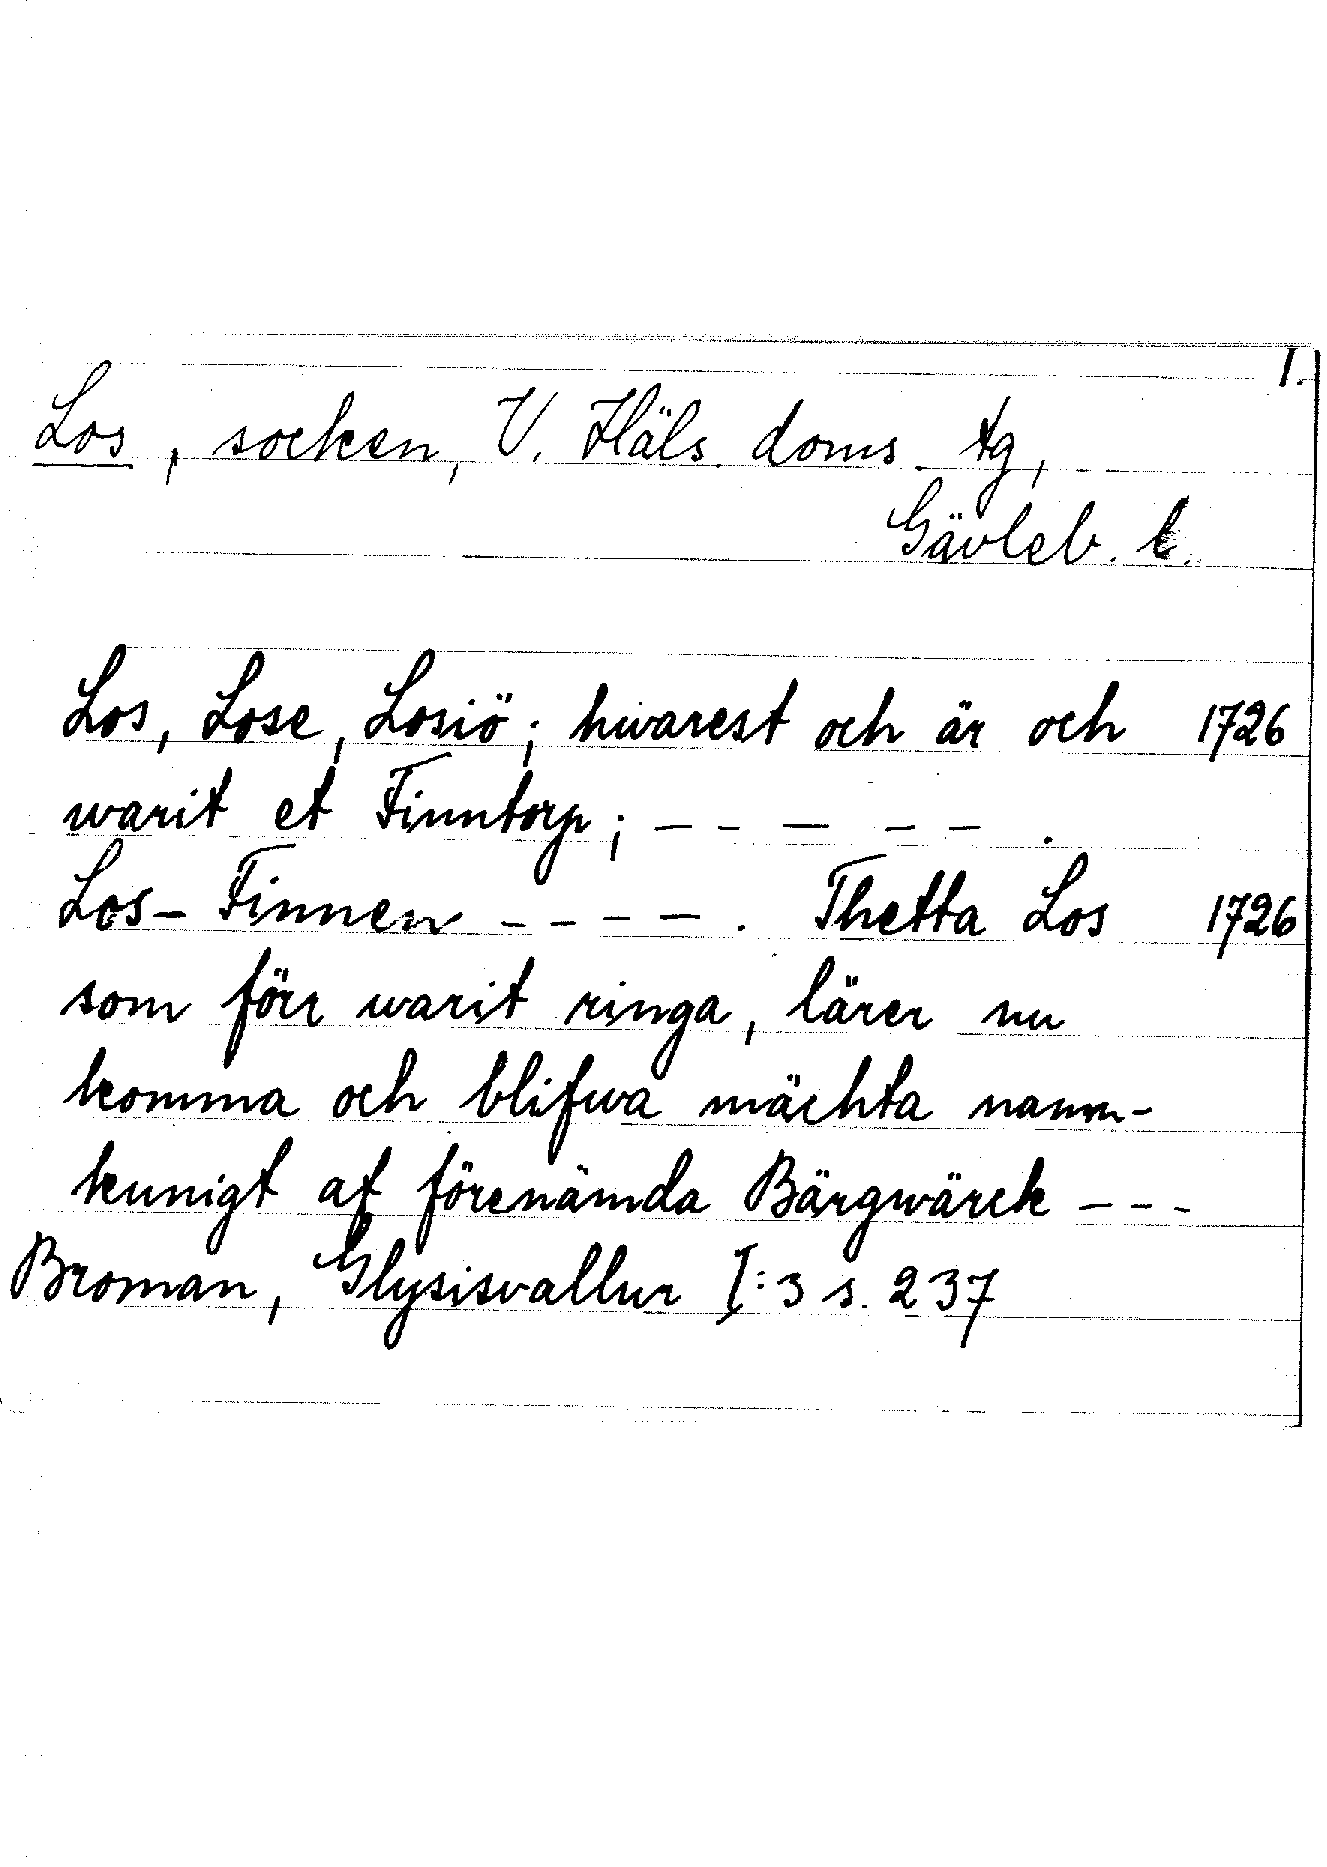 1.
Los, socken, V. Häls. doms. tg,
Gävleb. l.
Los, Lose, Losiö; hwarest och är och 1726
warit et Finntorp; – – – – – .
Los- Finnen – – – – . Thetta Los 1726
som förr warit ringa, lärer nu
komma och blifwa mächta namn-
kunigt af förenämda Bärgwärck – – –
Broman, Glysisvallur I:3 s. 237